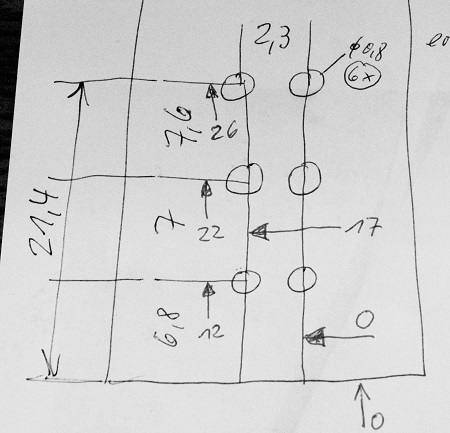 2,3
ø0,8
6x
7,6
26
21,4
7
22
17
6,8
12
0
0